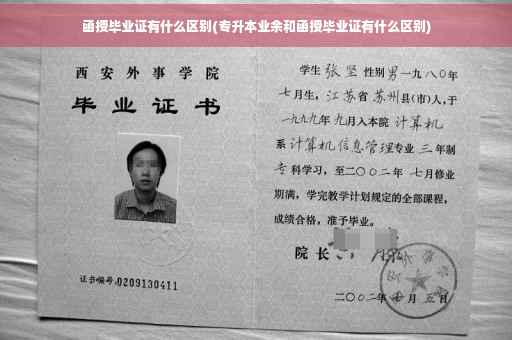 函授毕业证有什么区别(专升本业余和函授毕业证有什么区别)
西安外事学院
毕业证书
证书编号:0209130411
学生 张坚 性别 男 一九八〇年
七月生，江苏省 苏州县(市)人,于
一九九九年 九月入本院 计算机
系 计算机信息管理专业 三 年制
专 科学习，至二〇〇二年 七月修业
期满，学完教学计划规定的全部课程，
成绩合格，准予毕业。
院长
二〇〇二年 月 五日